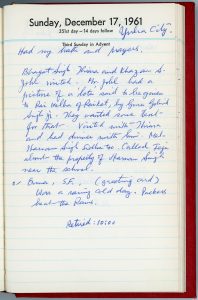 Sunday, December 17, 1961
351st day—14 days follow
Yuba City.
Third Sunday in Advent
Had my bath and prayers.
Bhagat Singh Thiara and Khazan S.
Johl visited. Mr Johl had a
picture of a data said to be given
to Rai Kalha of Raikot, by Guru Gobind
Singh ji. They wanted some text
for that. Visited with Thiara
and had dinner with him. Met
Harnam Singh Sidhu too. Called Teja
about the property of Harnam Singh
near the school.
S.F. (greeting card)
Was a raining cold day. Packers
beat the Rams.
Retired: 10:00